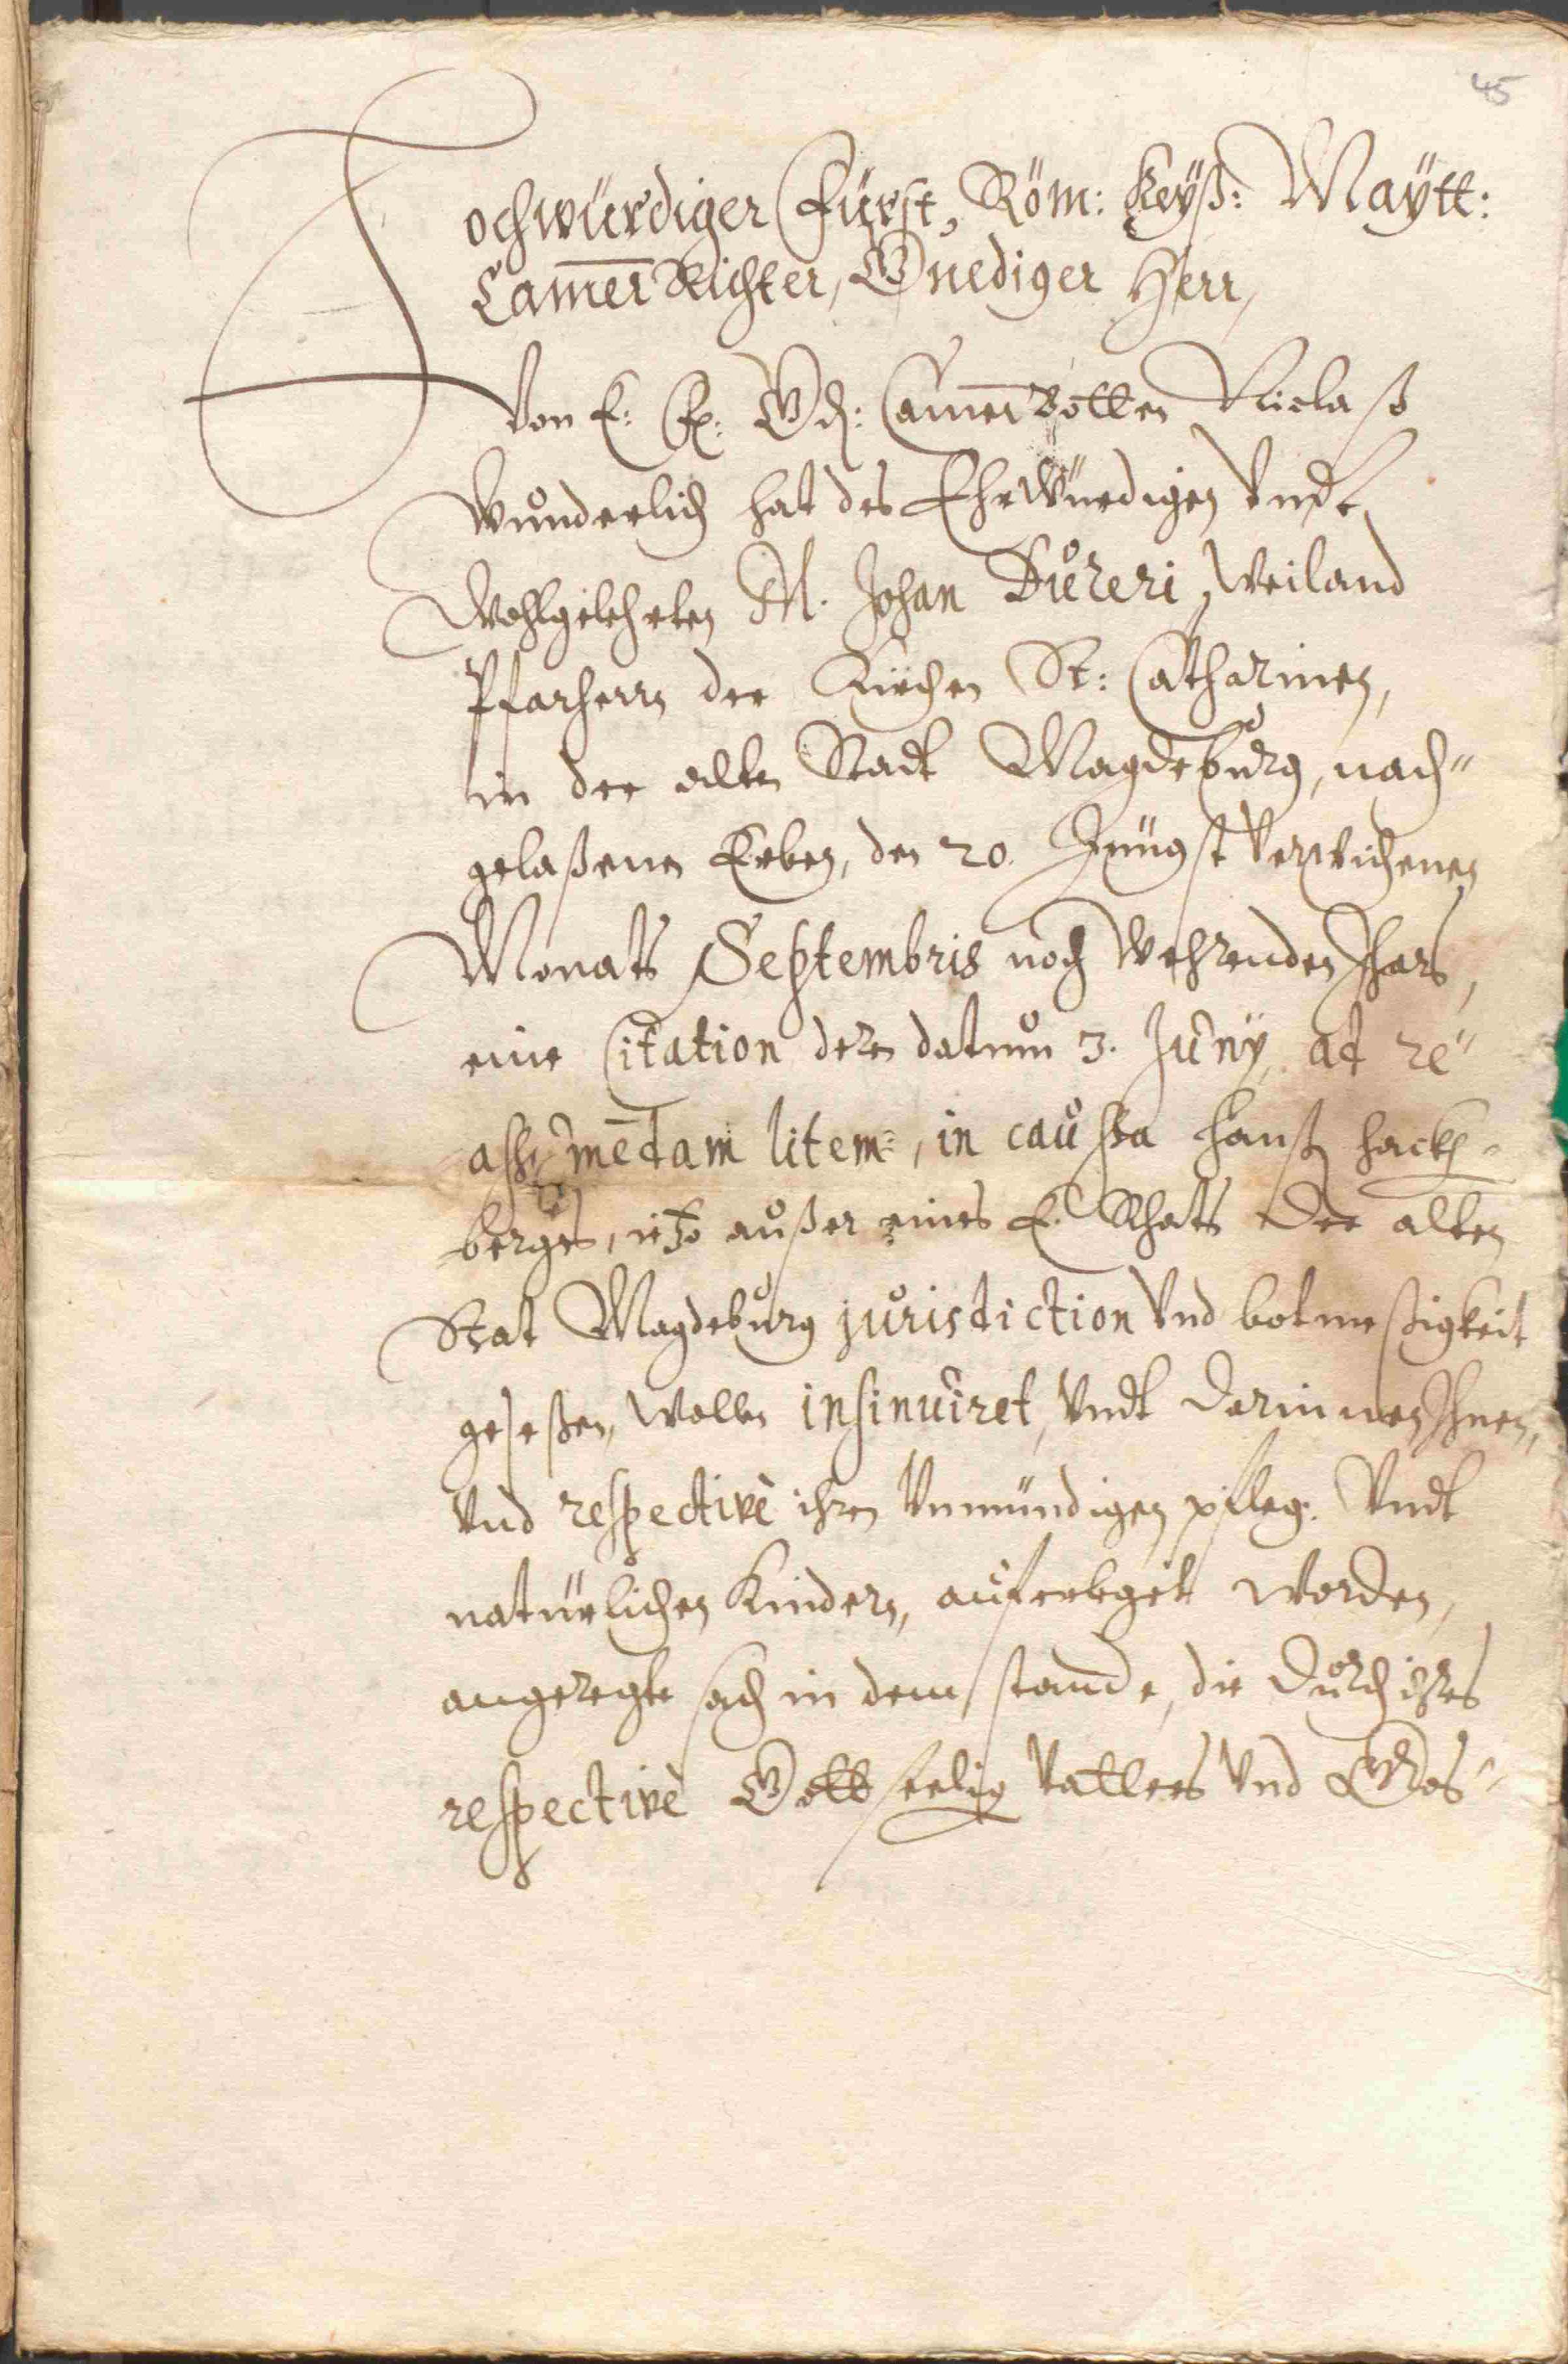 45
Hochwürdiger Fürst, Röm: Keyß: Maytt:
Camer̅ Richter, Gnediger Herr,
Von E: F: Gd: Camer̅ Botten Niclaß
Wunderlich hat des Ehrwürdigen Vndt
Wohlgelehrten M. Johan Düreri, Weiland
Pfarherrn der Kirchen St: Catharinen,
in der alten Stadt Magdeburg, nach"
gelaßenen Erben, den 20. Jüngst Verwichenen
Monats Septembris noch Wehrenden Jhars,
eine Citation deren datum 3. Juny, ad re"
assumēdam litem, in caußa Hanß Hacken-
berges, itzo außer eines E. Rhats der alten
Stat Magdeburg jurisdiction Vnd botmeßigkeit
geseßen, Wollen insinuiret, Vndt darinnen Ihnen,
Vnd respectivè ihren Vnmündigen pfleg: Vndt
natürlichen Kindern, auferleget worden,
angeregte sach in dem stande, die durch ihres
respectivè Gottseelig Vatters Vnd Gros"